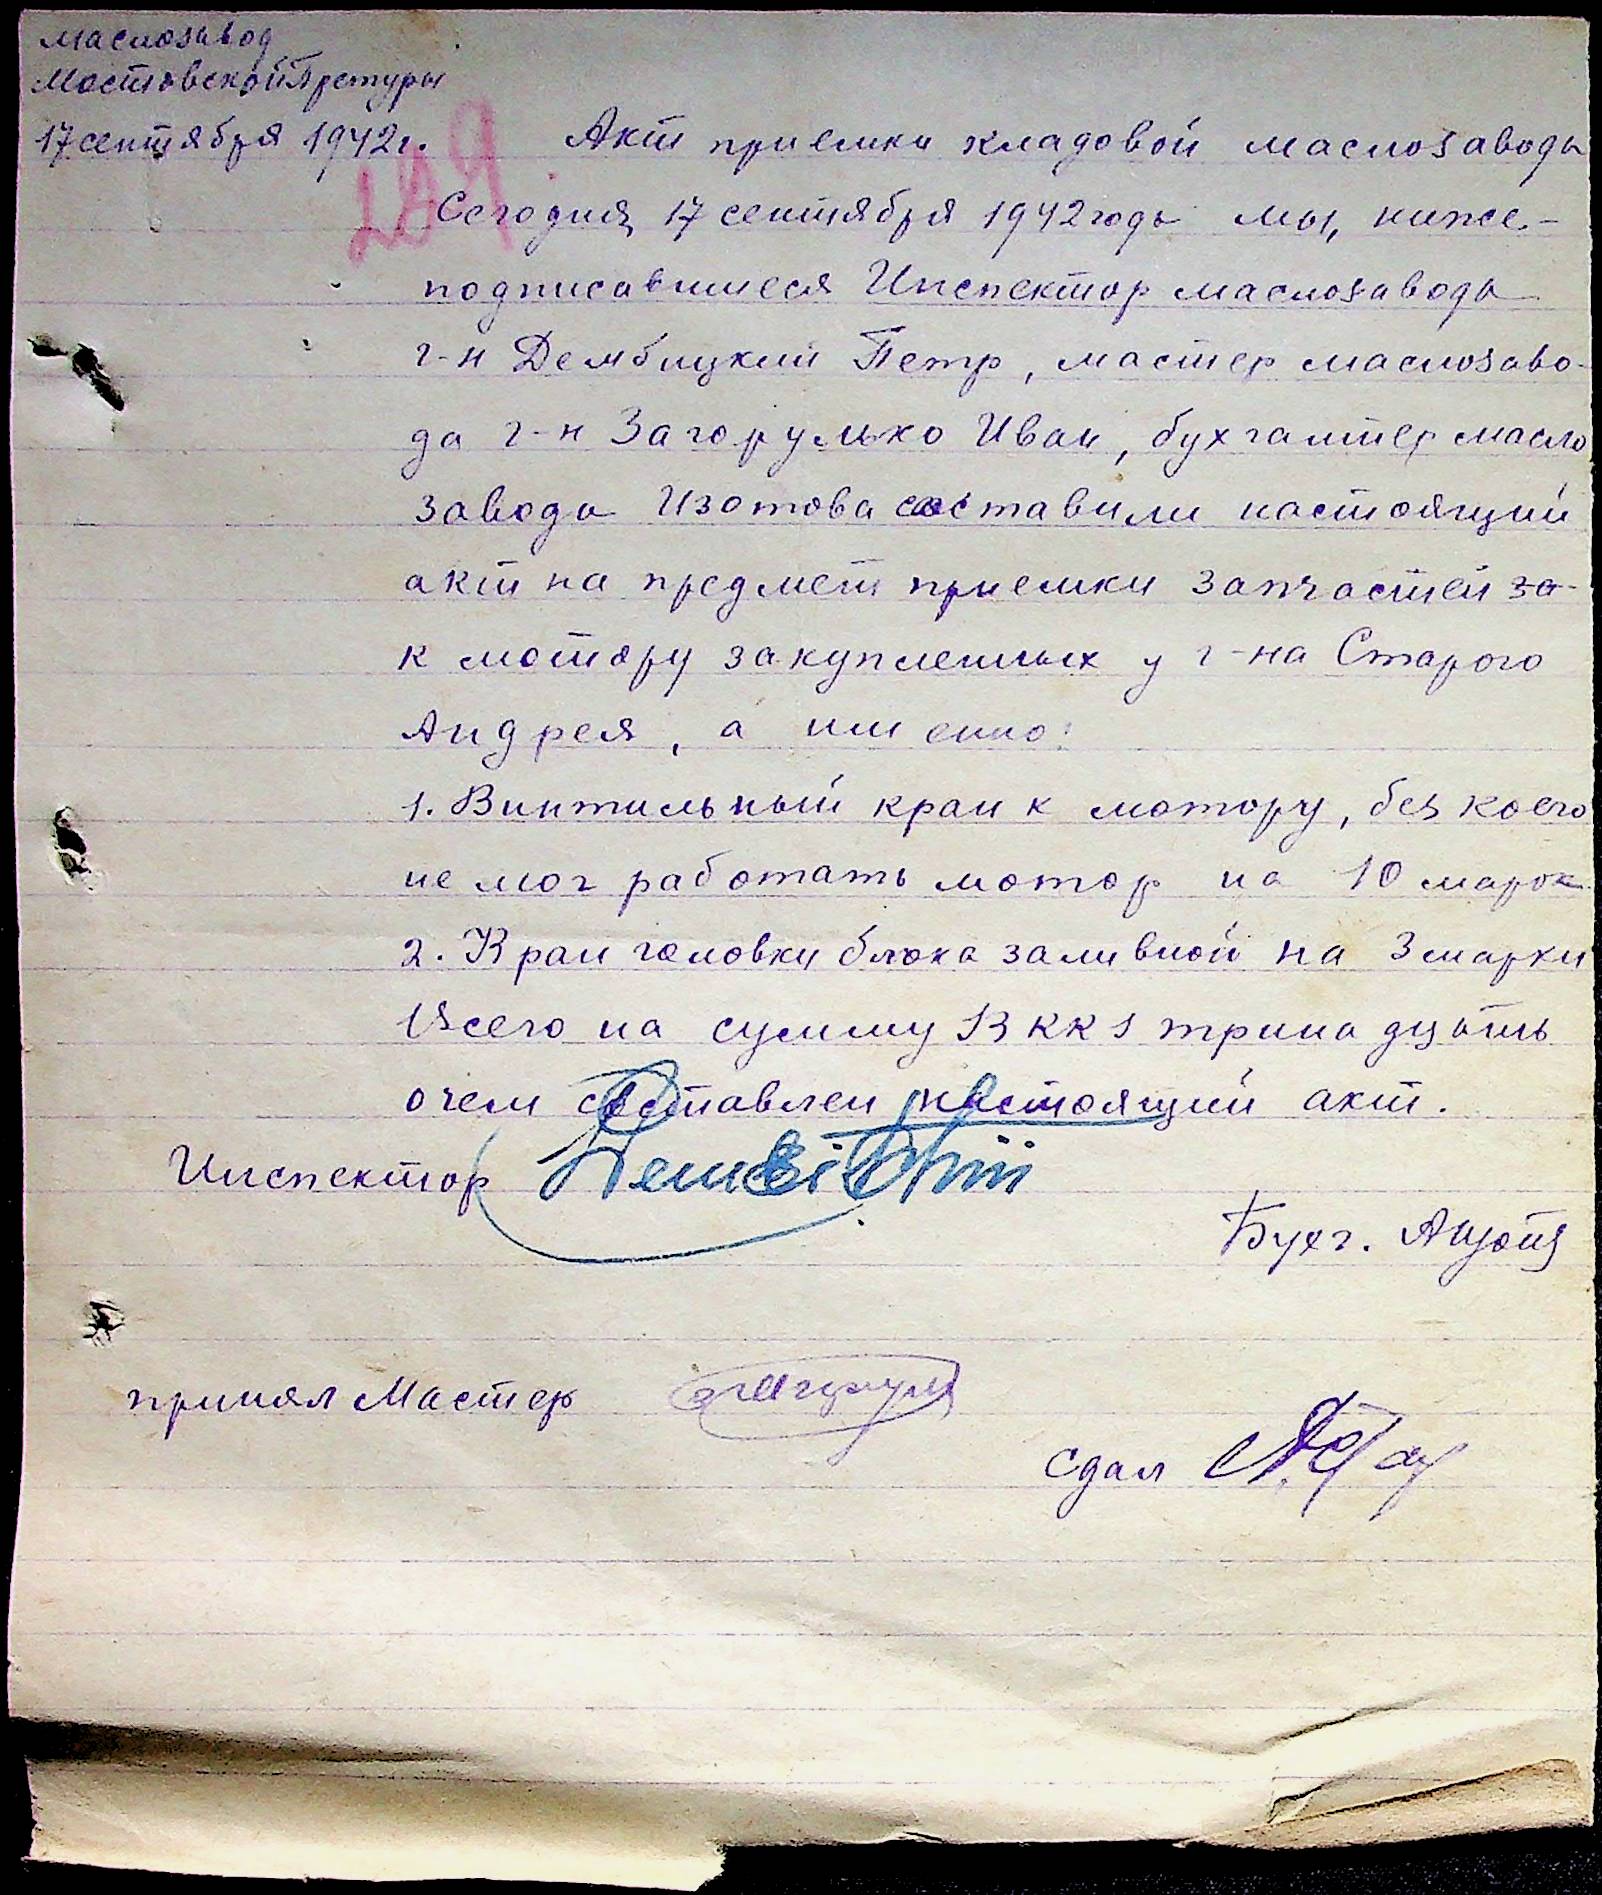 маслозавод
Мостовской Претуры
17 сентября 1942г.
209
Акт приемки кладовой маслозавода
Сегодня, 17 сентября 1942 года мы, ниже-
подписавшиеся Инспектор маслозавода
г-н Дембицкий Петр, мастер маслозаво-
да г-н Загорулько Иван, бухгалтер масло
завода Изотова составили настоящий
акт на предмет приемки запчастей за
к мотору закупленных у г-на Старого
Андрея, а именно:
1. Винтильный кран к мотору, без коего
не мог работать мотор на 10 марок
2. Кран головки блока заливной на 3 марки
Всего на сумму RKKS тринадцать
о чем составлен настоящий акт.
Инспектор
Бухг.
принял Мастер
сдал